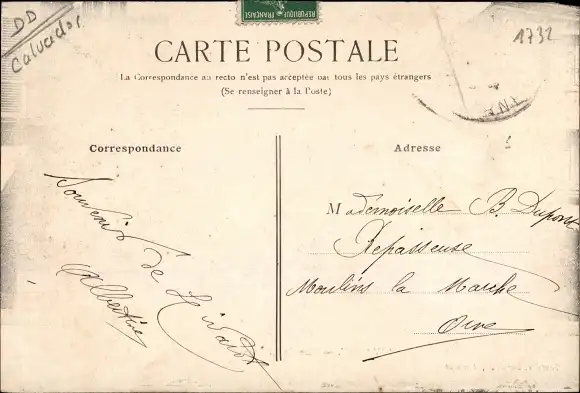 DD
Calvados
REPUBLIQUE FRANÇAISE
1732
CARTE POSTALE
La Correspondance au recto n'est pas acceptée par tous les pays étrangers
(Se renseigner à la Poste)
Correspondance
Souvenir de
Albertine
Adresse
Mademoiselle B. Dupont
Repasseuse
Moulins la Marche
Orne